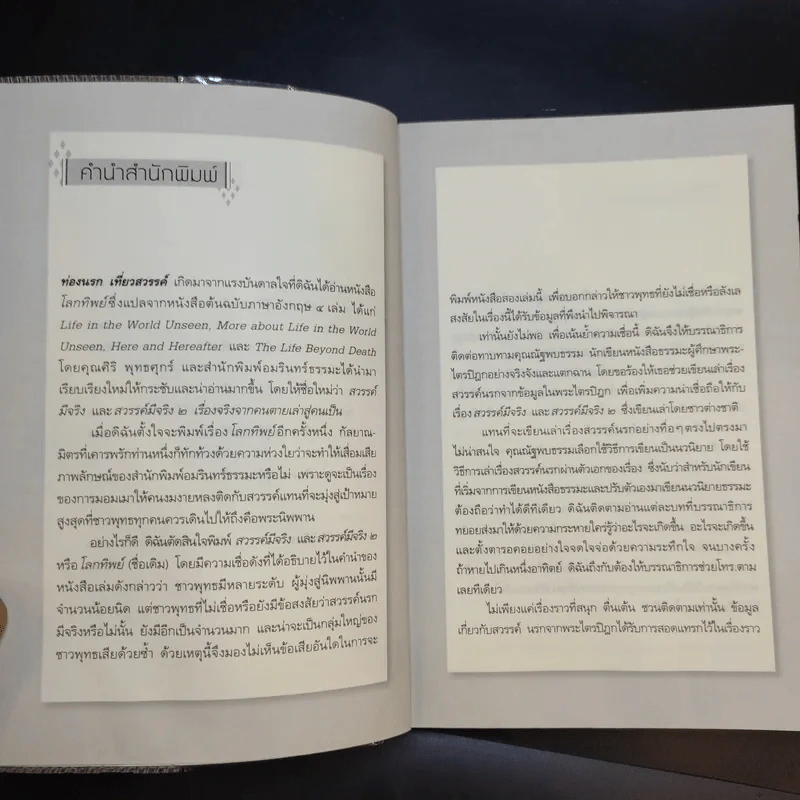 คำนำสำนักพิมพ์
ท่องนรก เที่ยวสวรรค์ เกิดมาจากแรงบันดาลใจที่ดิฉันได้อ่านหนังสือ
โลกทิพย์ ซึ่งแปลจากหนังสือต้นฉบับภาษาอังกฤษ ๔ เล่ม ได้แก่
Life in the World Unseen, More about Life in the World
Unseen, Here and Hereafter และ The Life Beyond Death
โดยคุณศิริ พุทธศุกร์ และสำนักพิมพ์อมรินทร์ธรรมะได้นำมา
เรียบเรียงใหม่ให้กระชับและน่าอ่านมากขึ้น โดยให้ชื่อใหม่ว่า สวรรค์
มีจริง และ สวรรค์มีจริง ๒ เรื่องจริงจากคนตายเล่าสู่คนเป็น
เมื่อดิฉันตั้งใจจะพิมพ์เรื่อง โลกทิพย์ อีกครั้งหนึ่ง กัลยาณ-
มิตรที่เคารพรักท่านหนึ่งก็ทักท้วงด้วยความห่วงใยว่าจะทำให้เสื่อมเสีย
ภาพลักษณ์ของสำนักพิมพ์อมรินทร์ธรรมะหรือไม่ เพราะดูจะเป็นเรื่อง
ของการมอมเมาให้คนงมงายหลงติดกับสวรรค์แทนที่จะมุ่งสู่เป้าหมาย
สูงสุดที่ชาวพุทธทุกคนควรเดินไปให้ถึงคือพระนิพพาน
อย่างไรก็ดี ดิฉันตัดสินใจพิมพ์ สวรรค์มีจริง และ สวรรค์มีจริง ๒
หรือ โลกทิพย์ (ชื่อเดิม) โดยมีความเชื่อดังที่ได้อธิบายไว้ในคำนำของ
หนังสือเล่มดังกล่าวว่า ชาวพุทธมีหลายระดับ ผู้มุ่งสู่นิพพานนั้นมี
จำนวนน้อยนิด แต่ชาวพุทธที่ไม่เชื่อหรือยังมีข้อสงสัยว่าสวรรค์นรก
มีจริงหรือไม่นั้น ยังมีอีกเป็นจำนวนมาก และน่าจะเป็นกลุ่มใหญ่ของ
ชาวพุทธเสียด้วยซ้ำ ด้วยเหตุนี้จึงมองไม่เห็นข้อเสียอันใดในการจะ
พิมพ์หนังสือสองเล่มนี้ เพื่อบอกกล่าวให้ชาวพุทธที่ยังไม่เชื่อหรือลังเล
สงสัยในเรื่องนี้ได้รับข้อมูลที่พึงนำไปพิจารณา
เท่านั้นยังไม่พอ เพื่อเน้นย้ำความเชื่อนี้ ดิฉันจึงให้บรรณาธิการ
ติดต่อทาบทามคุณณัฐพบธรรม นักเขียนหนังสือธรรมะผู้ศึกษาพระ-
ไตรปิฎกอย่างจริงจังและแตกฉาน โดยขอร้องให้เธอช่วยเขียนเล่าเรื่อง
สวรรค์นรกจากข้อมูลในพระไตรปิฎก เพื่อเพิ่มความน่าเชื่อถือให้กับ
เรื่อง สวรรค์มีจริง และ สวรรค์มีจริง ๒ ซึ่งเขียนเล่าโดยชาวต่างชาติ
แทนที่จะเขียนเล่าเรื่องสวรรค์นรกอย่างทื่อๆ ตรงไปตรงมา
ไม่น่าสนใจ คุณณัฐพบธรรมเลือกใช้วิธีการเขียนเป็นนวนิยาย โดยใช้
วิธีการเล่าเรื่องสวรรค์นรกผ่านตัวเอกของเรื่อง ซึ่งนับว่าสำหรับนักเขียน
ที่เริ่มจากการเขียนหนังสือธรรมะและปรับตัวเองมาเขียนนวนิยายธรรมะ
ต้องถือว่าทำได้ดีทีเดียว ดิฉันติดตามอ่านแต่ละบทที่บรรณาธิการ
ทยอยส่งมาให้ด้วยความกระหายใคร่รู้ว่าอะไรจะเกิดขึ้น อะไรจะเกิดขึ้น
และตั้งตารอคอยอย่างใจจดใจจ่อด้วยความระทึกใจ จนบางครั้ง
ถ้าหายไปเกินหนึ่งอาทิตย์ ดิฉันถึงกับต้องให้บรรณาธิการช่วยโทร.ตาม
เลยทีเดียว
ไม่เพียงแค่เรื่องราวที่สนุก ตื่นเต้น ชวนติดตามเท่านั้น ข้อมูล
เกี่ยวกับสวรรค์ นรกจากพระไตรปิฎกได้รับการสอดแทรกไว้ในเรื่องราว